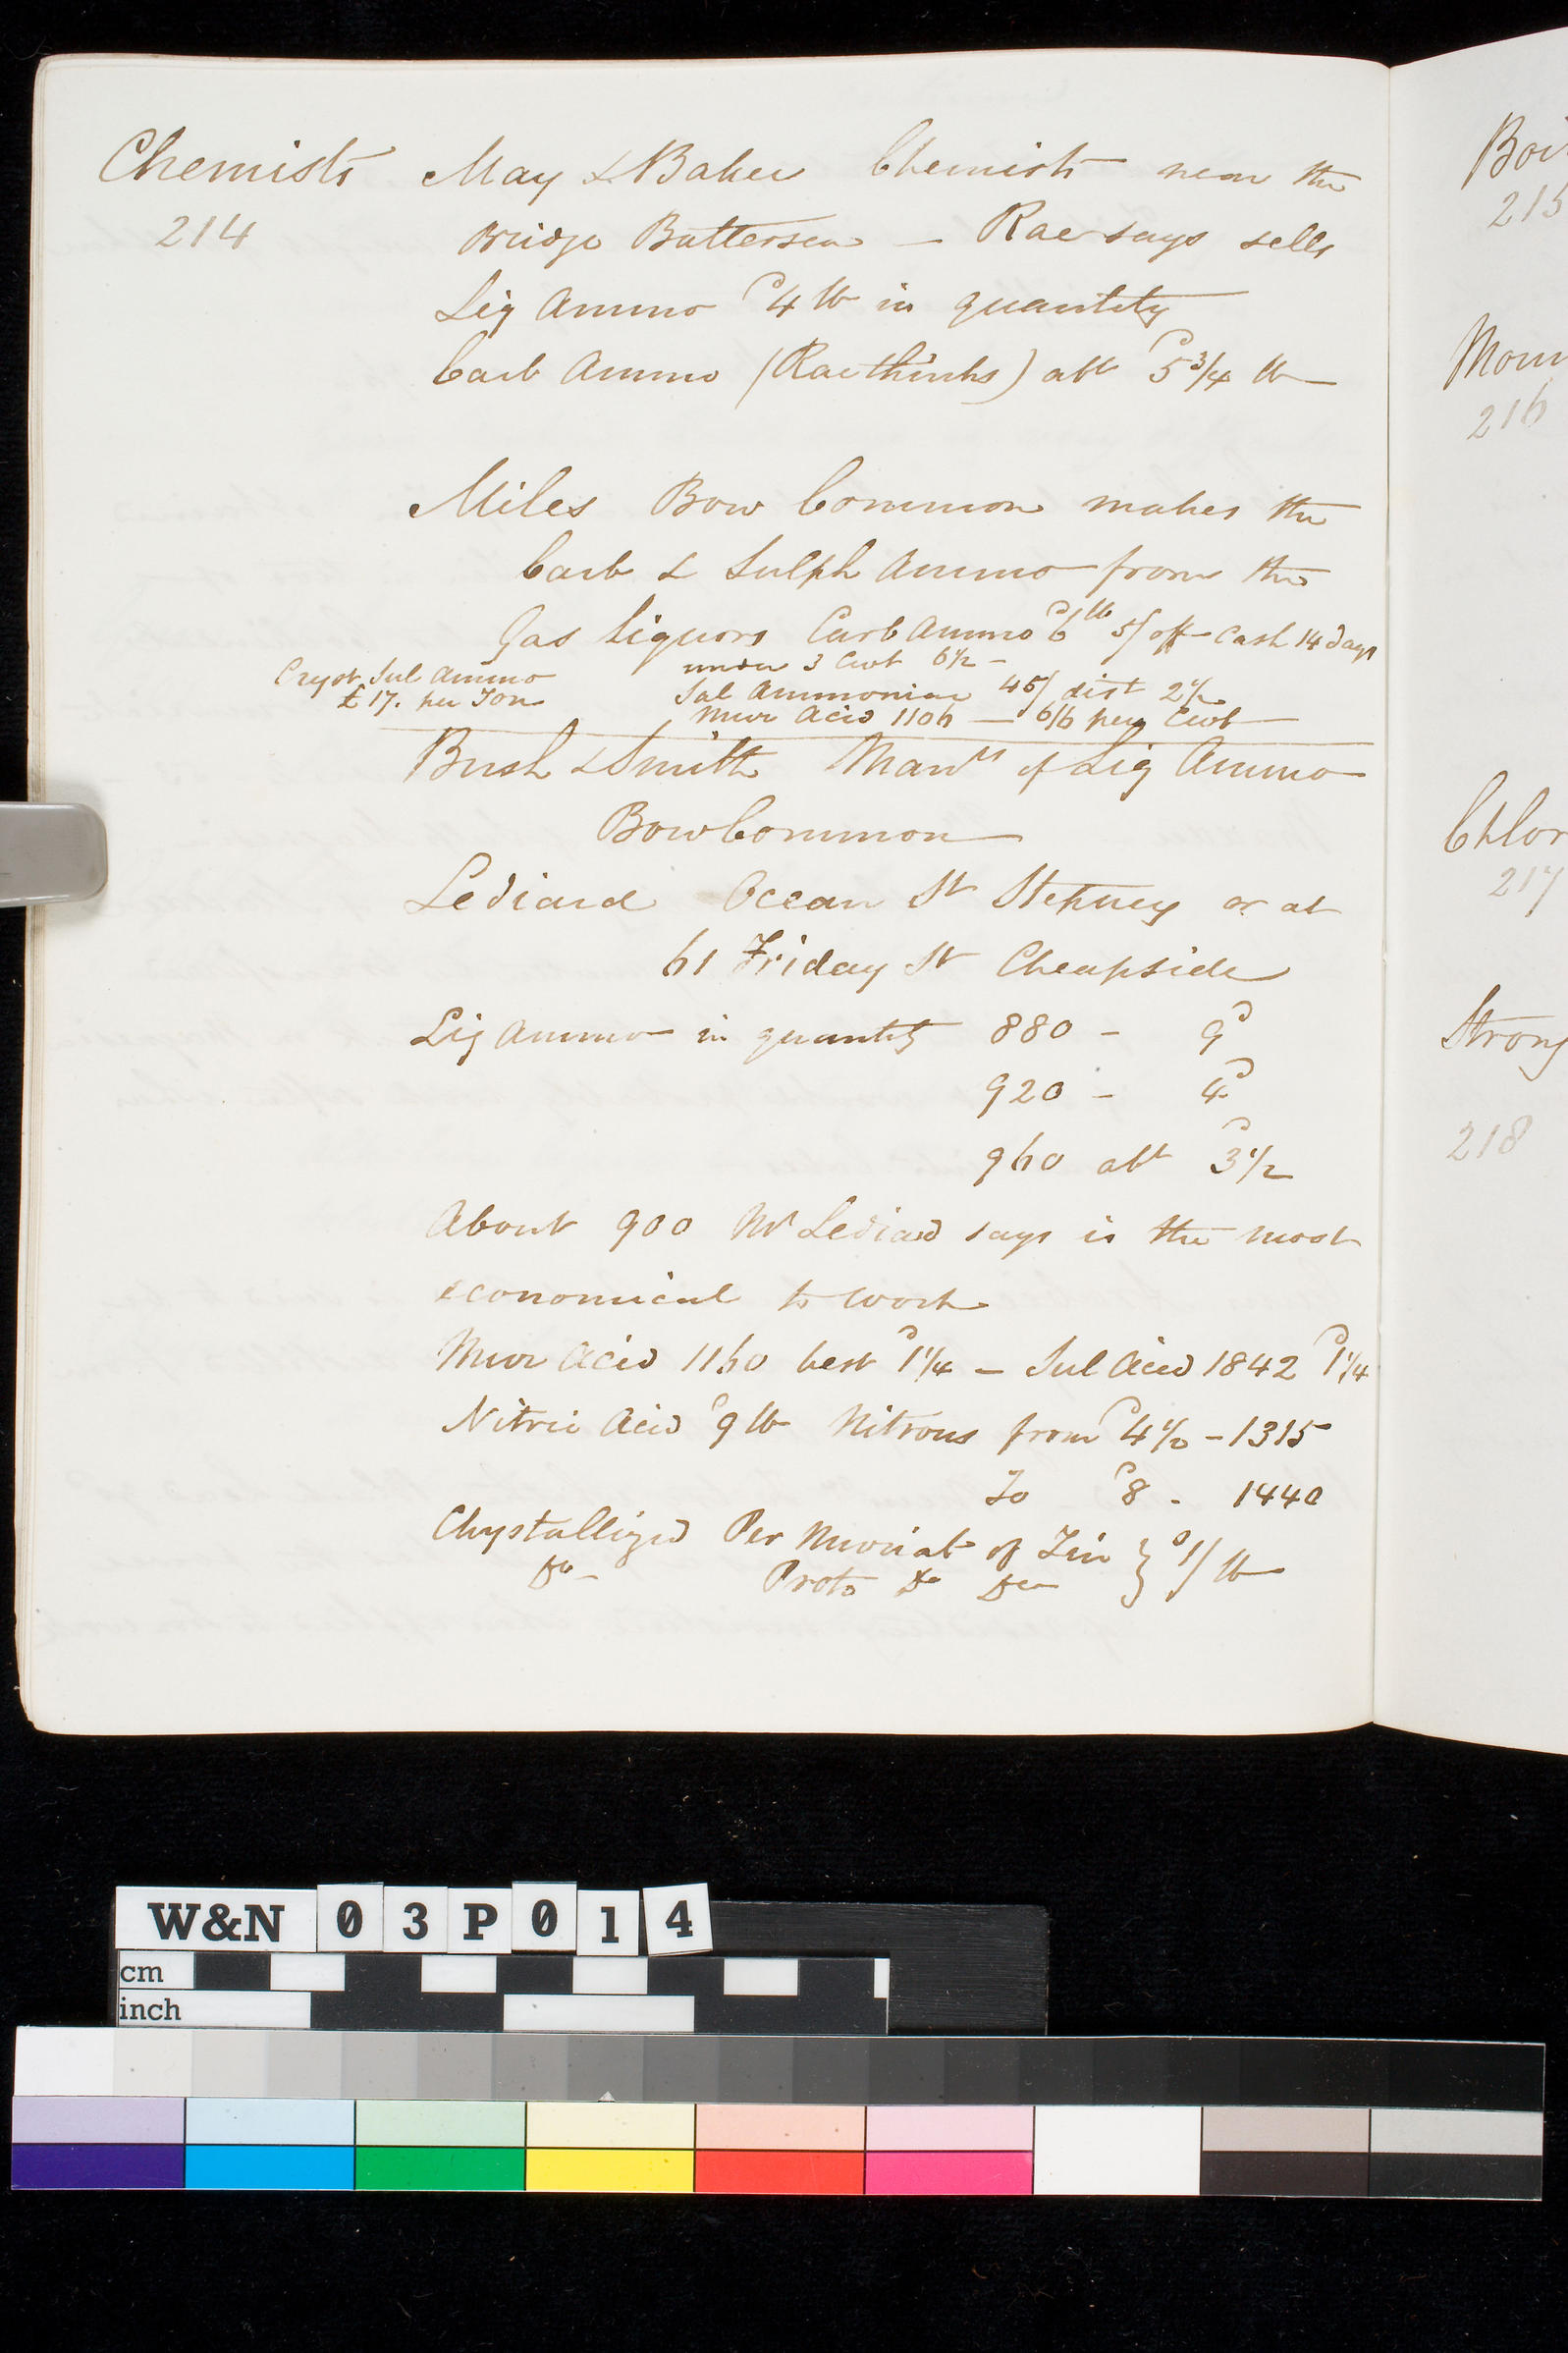 Chemists May & Baker Chemists near the
214 Bridge Battersea — Rae says sells
Liq Ammo d4 lb in quantity
Carb Ammo (Rae thinks) abt d5 3/4 lb —
Miles Bow Common makes the
Carb & Sulph Ammo from the
Gas liquors Carb Ammo d6 lb 5/ off Cash 14 days
under 3 Cwt 6 1/2 —
Cryst. Sul Ammo
£17. per Ton
Sal Ammoniac 45/ dist 2 1/2
Mur Acid 1106 — 6/6 per Cwt
Bush & Smith Manrs of Liq Ammo
Bow Common
Lediard Ocean St Stepney or at
61 Friday St Cheapside
Liq Ammo in quantity 880 - 9d
920 - 4d
960 abt d3 1/2
About 900 Mr Lediard says is the most
economical to work
Mur Acid 1160 best d1 1/4 — Sul Acid 1842 d1 1/4
Nitric Acid d9 lb Nitrous from d4 1/2 - 1315
To d8 - 1440
Chystallized Per Muriat of Tin } 1/ lb
Do - Proto Do Do
Boi
215
Mour
216
Chlor
217
Strong
218
W&N 03P014
cm
inch